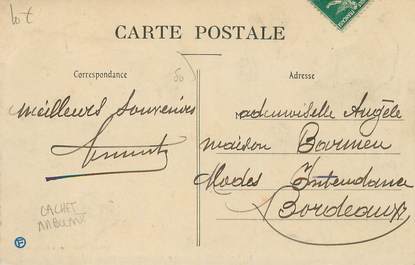 Lot
CARTE POSTALE
Correspondance
Adresse
Meilleurs Souvenirs
Mademoiselle Angèle
maison
Modes Intendance
Bordeaux
CACHET